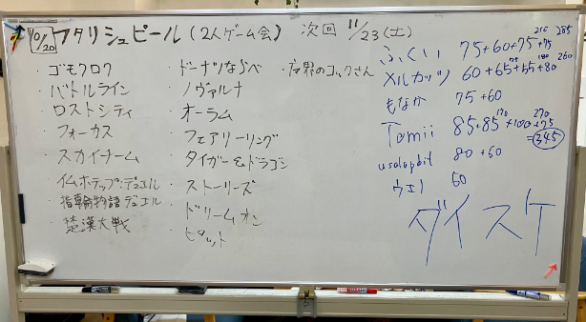 10/20 フタリシュピール(2人ゲーム会) 次回 11/23(土)
・ゴモクロク
・バトルライン
・ロストシティ
・フォーカス
・スカイチーム
・イムホテップ:デュエル
・指輪物語デュエル
・楚漢大戦
・ドーナツならべ
・ノヴァルナ
・オーラム
・フェアリーリング
・タイガー&ドラゴン
・ストーリーズ
・ドリームオン
・ピット
・魔界のコックさん
ふくい 75+60+75+75 210 285
メルカッツ 60+65+55+80 180 260
もなか 75+60
Tomii 85+85+100+75 170 270
=345
usalapbit 80+60
ウエ 60
ダイスケ